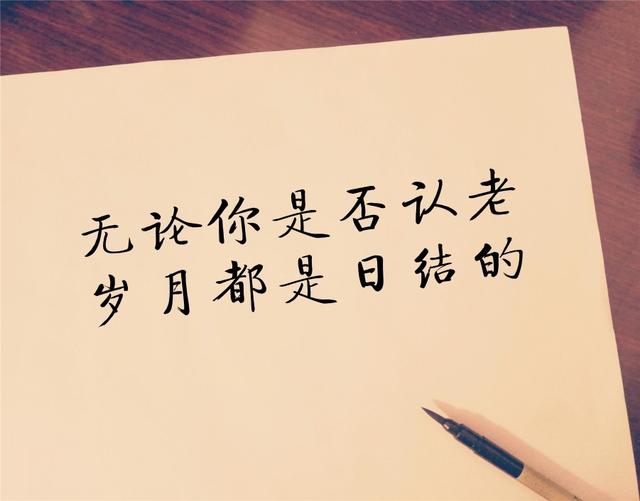 无论你是否认老
岁月都是日结的